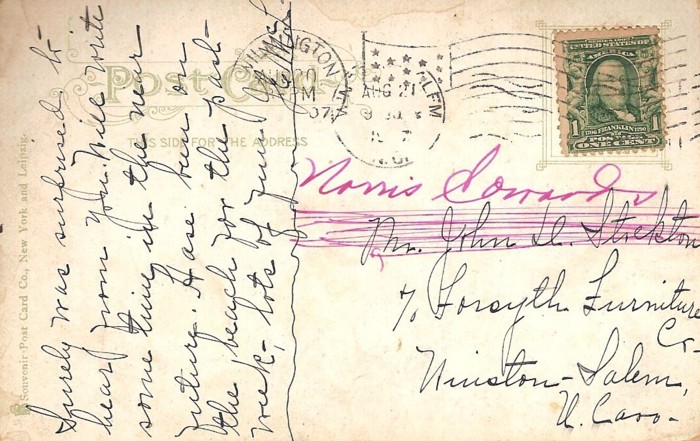 Post Card
THIS SIDE FOR THE ADDRESS
Souvenir Post Card Co., New York and Leipsig.
Surely was surprised to
hear from you. Will write
some thing in the near
future. Have been on
the beach for the past
week, lots of fun.
WILMINGTON
PM
07
WINSTON-SALEM
AUG 21
N.C.
UNITED STATES OF
AMERICA
1 1
1706 FRANKLIN 1790
POSTAGE
ONE CENT
Norris Edwards
Mr. John D. Stockton
℅ Forsyth Furniture
Co.
Winston-Salem,
N. Caro.